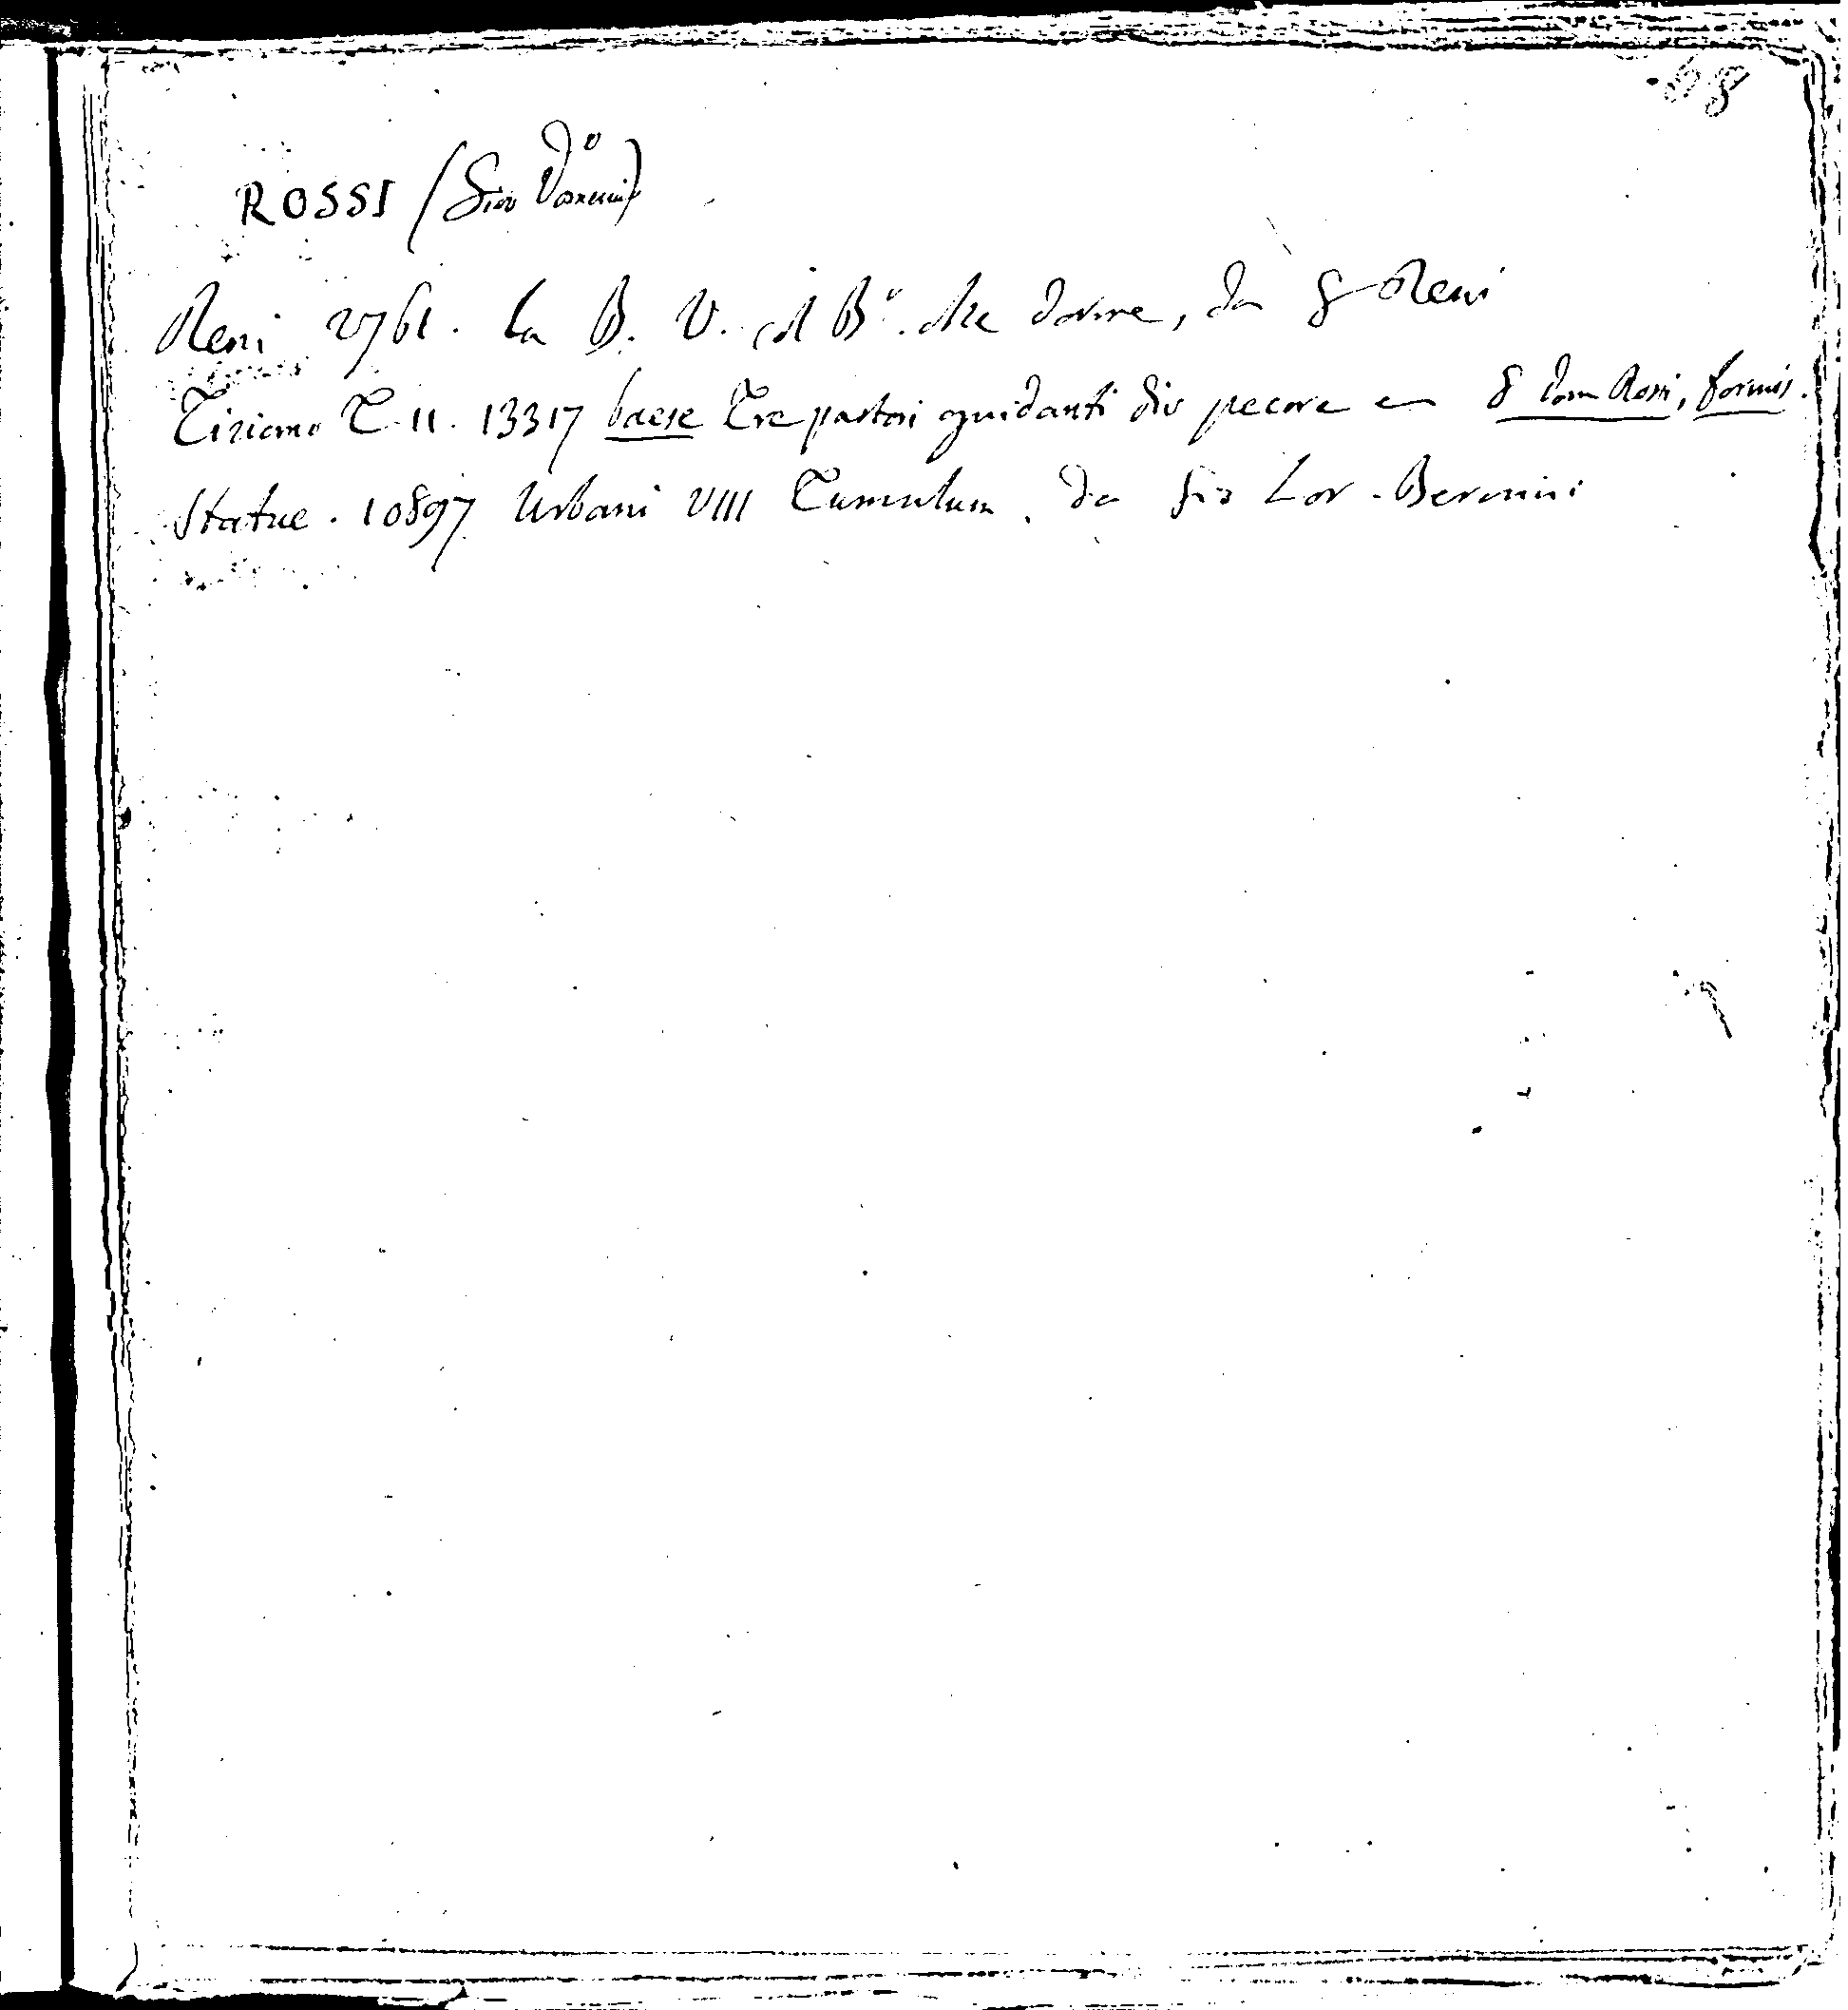 58
ROSSI (Giov Domenico)
Reni 2761. La B. V. col B°. che dorme, da G Reni
Tiziano T. 11. 13317 baese Tre pastori guidanti div pecore G dom Rossi, formis.
Statue. 10897 Urbani VIII Tumulum. da Gio Lor. Bernini